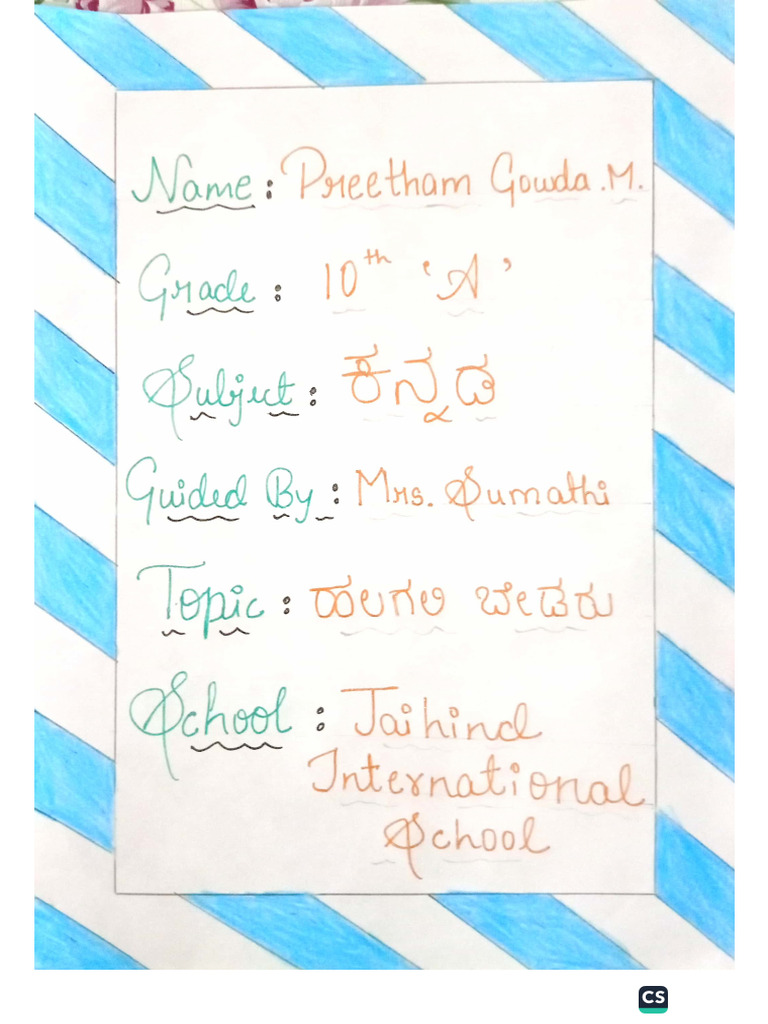 Name : Preetham Gowda .M.
Grade : 10th 'A'
Subject : ಕನ್ನಡ
Guided By : Mrs. Sumathi
Topic : ಹಲಗಲಿ ಬೇಡರು
School : Jaihind
International
School
CS